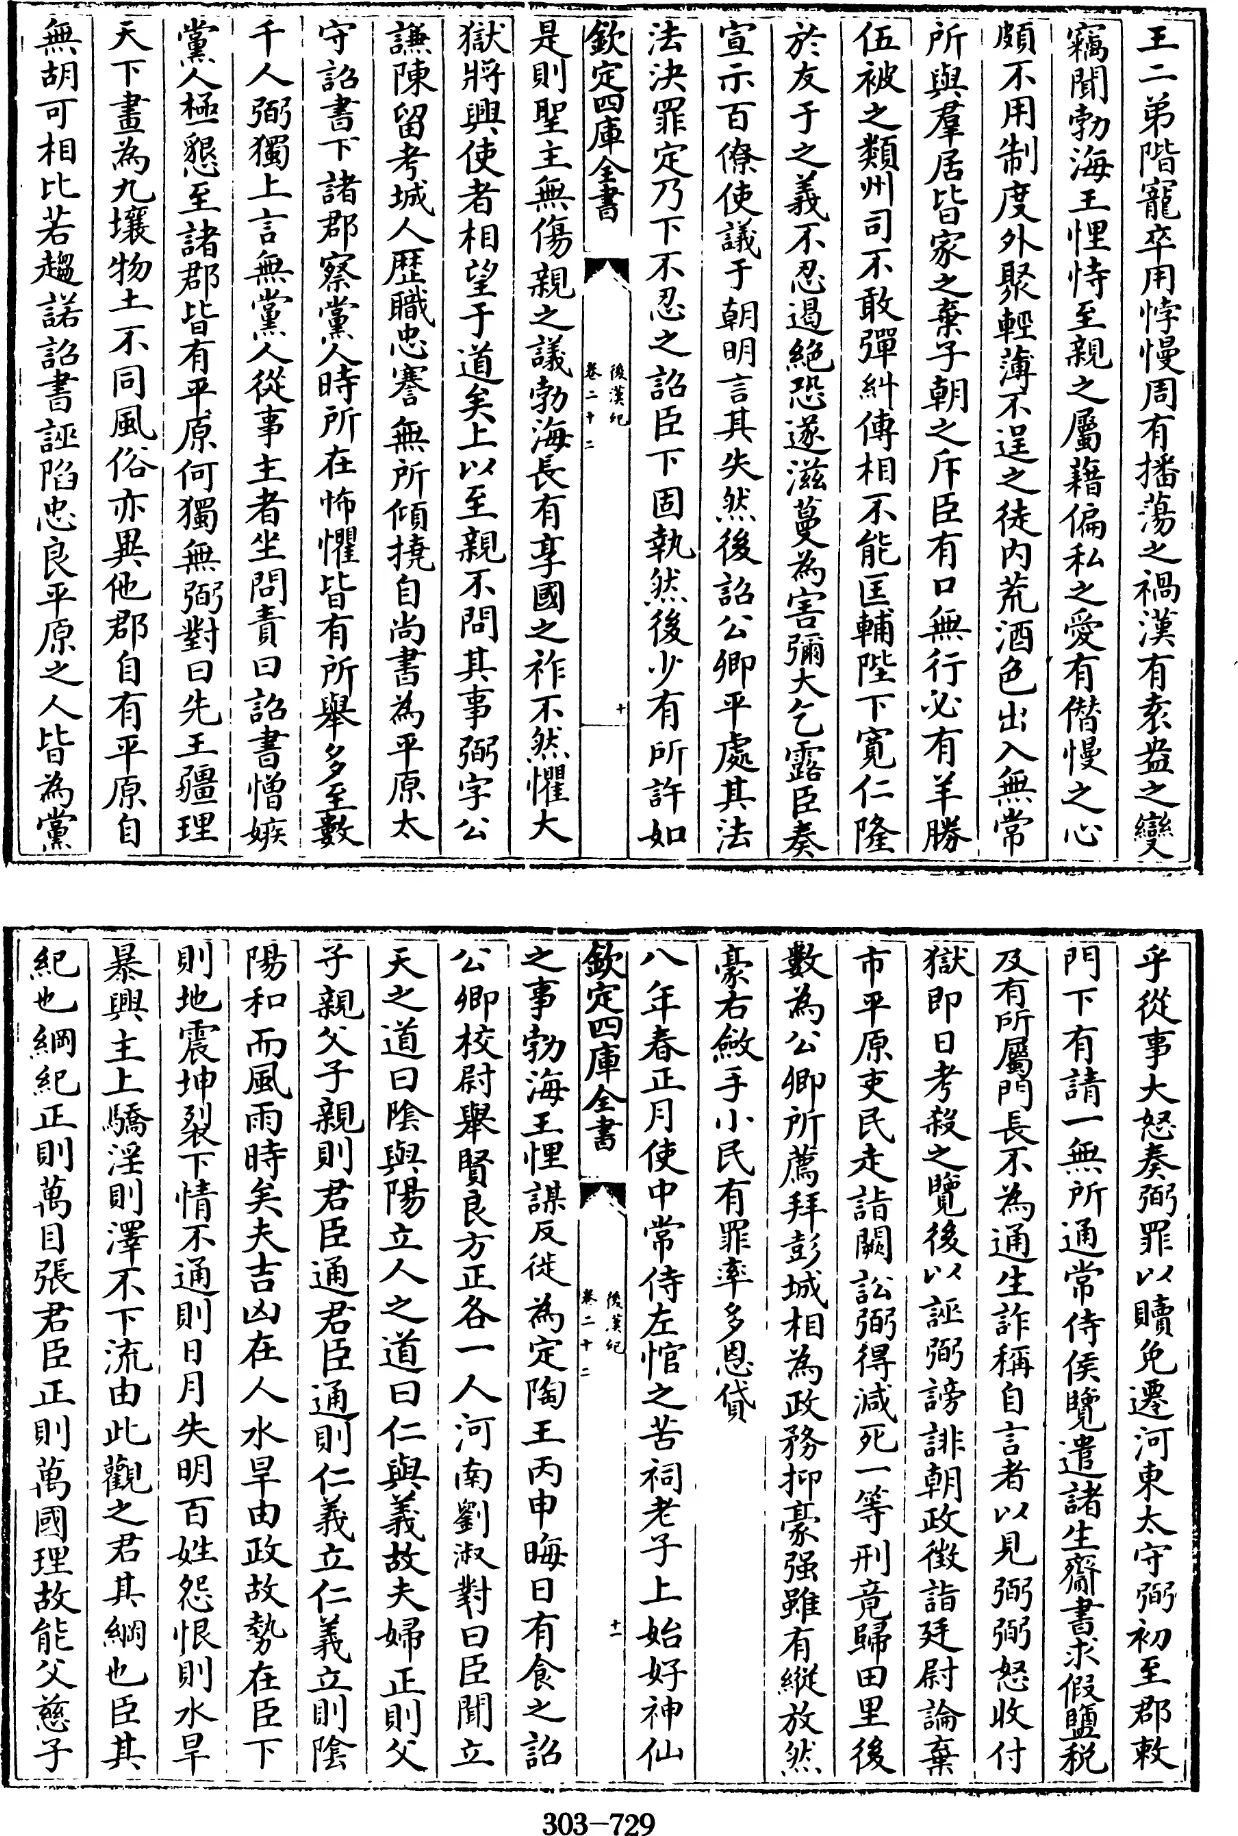 王二弟階寵卒用悖慢周有播蕩之禍漢有袁盎之變
竊聞勃海王悝恃至親之屬藉偏私之愛有僭慢之心
頗不用制度外聚輕薄不逞之徒内荒酒色出入無常
所與羣居皆家之棄子朝之斥臣有口無行必有羊勝
伍被之類州司不敢彈糾傅相不能匡輔陛下寛仁隆
於友于之義不忍遏絶恐遂滋蔓為害彌大乞露臣奏
宣示百僚使議于朝明言其失然後詔公卿平處其法
法決罪定乃下不忍之詔臣下固執然後少有所許如
欽定四庫全書
後漢紀
卷二十二
十
是則聖主無傷親之議勃海長有享國之祚不然懼大
獄將興使者相望于道矣上以至親不問其事弼字公
謙陳留考城人歴職忠謇無所傾撓自尚書為平原太
守詔書下諸郡察黨人時所在怖懼皆有所舉多至數
千人弼獨上言無黨人從事主者坐問責曰詔書憎嫉
黨人極懇至諸郡皆有平原何獨無弼對曰先王疆理
天下畫為九壤物土不同風俗亦異他郡自有平原自
無胡可相比若趨諾詔書誣陷忠良平原之人皆為黨
乎從事大怒奏弼罪以贖免遷河東太守弼初至郡敕
門下有請一無所通常侍侯覽遣諸生齎書求假鹽税
及有所屬門長不為通生詐稱自言者以見弼弼怒收付
獄即日考殺之覽後以誣弼謗誹朝政徴詣廷尉論棄
市平原吏民走詣闕訟弼得減死一等刑竟歸田里後
數為公卿所薦拜彭城相為政務抑豪强雖有縱放然
豪右斂手小民有罪率多恩貸
八年春正月使中常侍左悺之苦祠老子上始好神仙
欽定四庫全書
後漢紀
卷二十二
十一
之事勃海王悝謀反徙為定陶王丙申晦日有食之詔
公卿校尉舉賢良方正各一人河南劉淑對曰臣聞立
天之道曰陰與陽立人之道曰仁與義故夫婦正則父
子親父子親則君臣通君臣通則仁義立仁義立則陰
陽和而風雨時矣夫吉凶在人水旱由政故勢在臣下
則地震坤裂下情不通則日月失明百姓怨恨則水旱
暴興主上驕淫則澤不下流由此觀之君其綱也臣其
紀也綱紀正則萬目張君臣正則萬國理故能父慈子
303-729